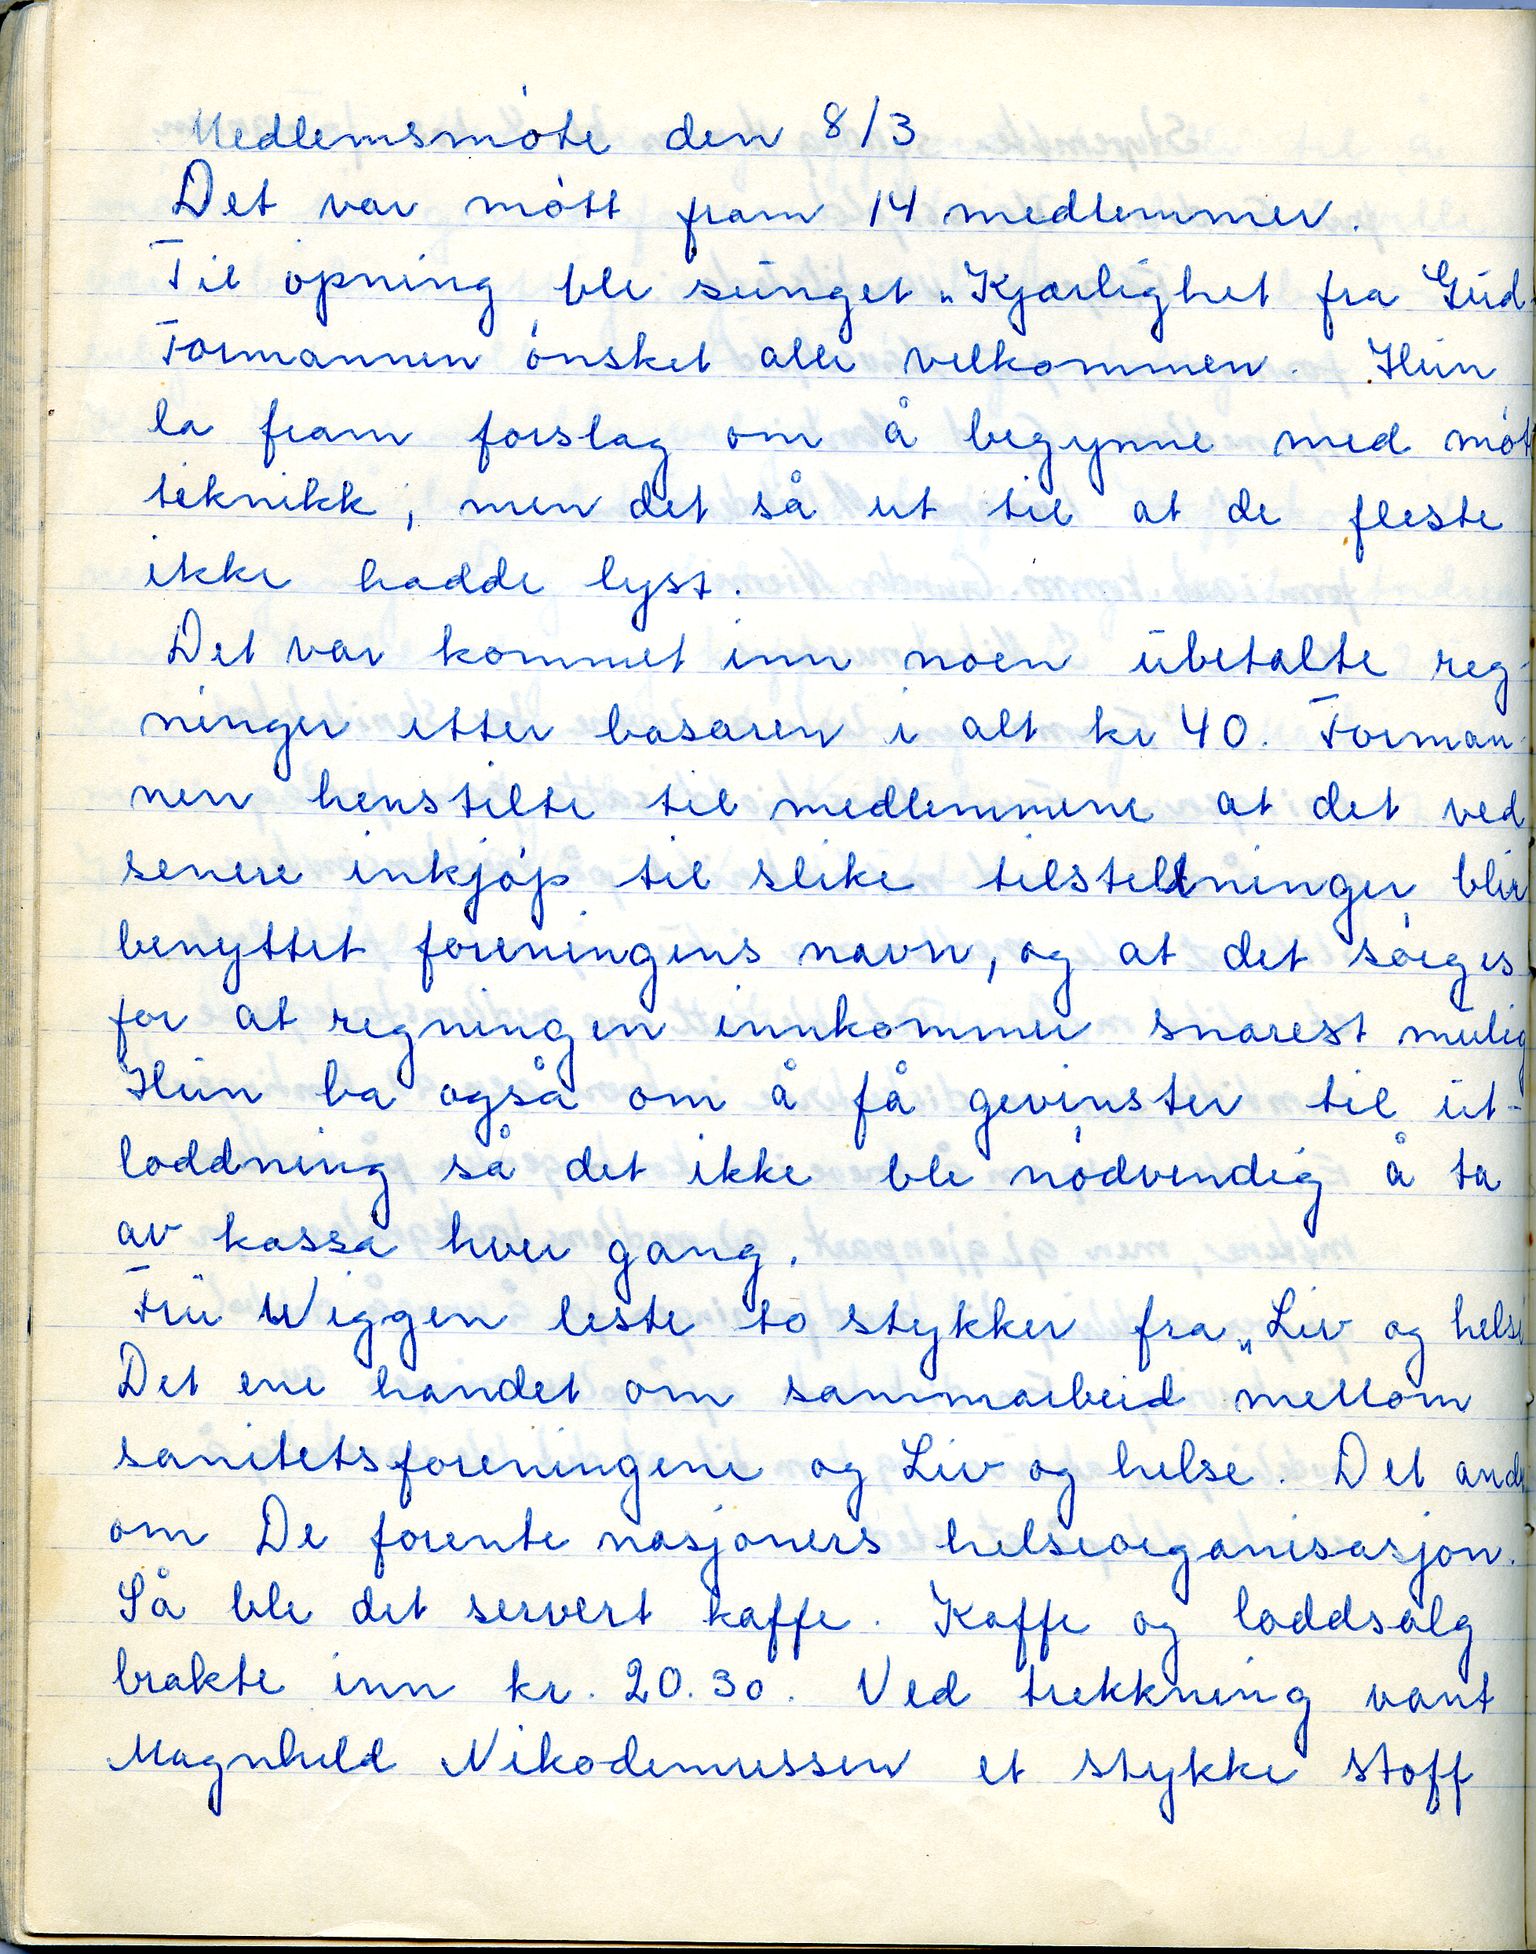 Medlemsmøte den 8/3
Det var møtt fram 14 medlemmer.
Til åpning ble sunget „Kjærlighet fra Gud
Formannen ønsket alle velkommen. Hun
la fram forslag om å begynne med møt
teknikk, men det så ut til at de fleste
ikke hadde lyst.
Det var kommet inn noen ubetalte reg-
ninger etter basaren i alt kr 40. Forman-
nen henstilte til medlemmene at det ved
senere innkjøp til slike tilstelninger blir
benyttet foreningens navn, og at det sørges
for at regningen innkommer snarest mulig
Hun ba også om å få gevinster til ut-
loddning så det ikke ble nødvendig å ta
av kassa hver gang.
Fru Wiggen leste to stykker fra „Liv og helse
Det ene handlet om sammarbeid mellom
sanitetsforeningene og Liv og helse. Det andre
om De forente nasjoners helseorganisasjon.
Så ble det servert kaffe. Kaffe og loddsalg
brakte inn kr. 20.30. Ved trekkning vant
Magnhild Nikodemussen et stykke stoff